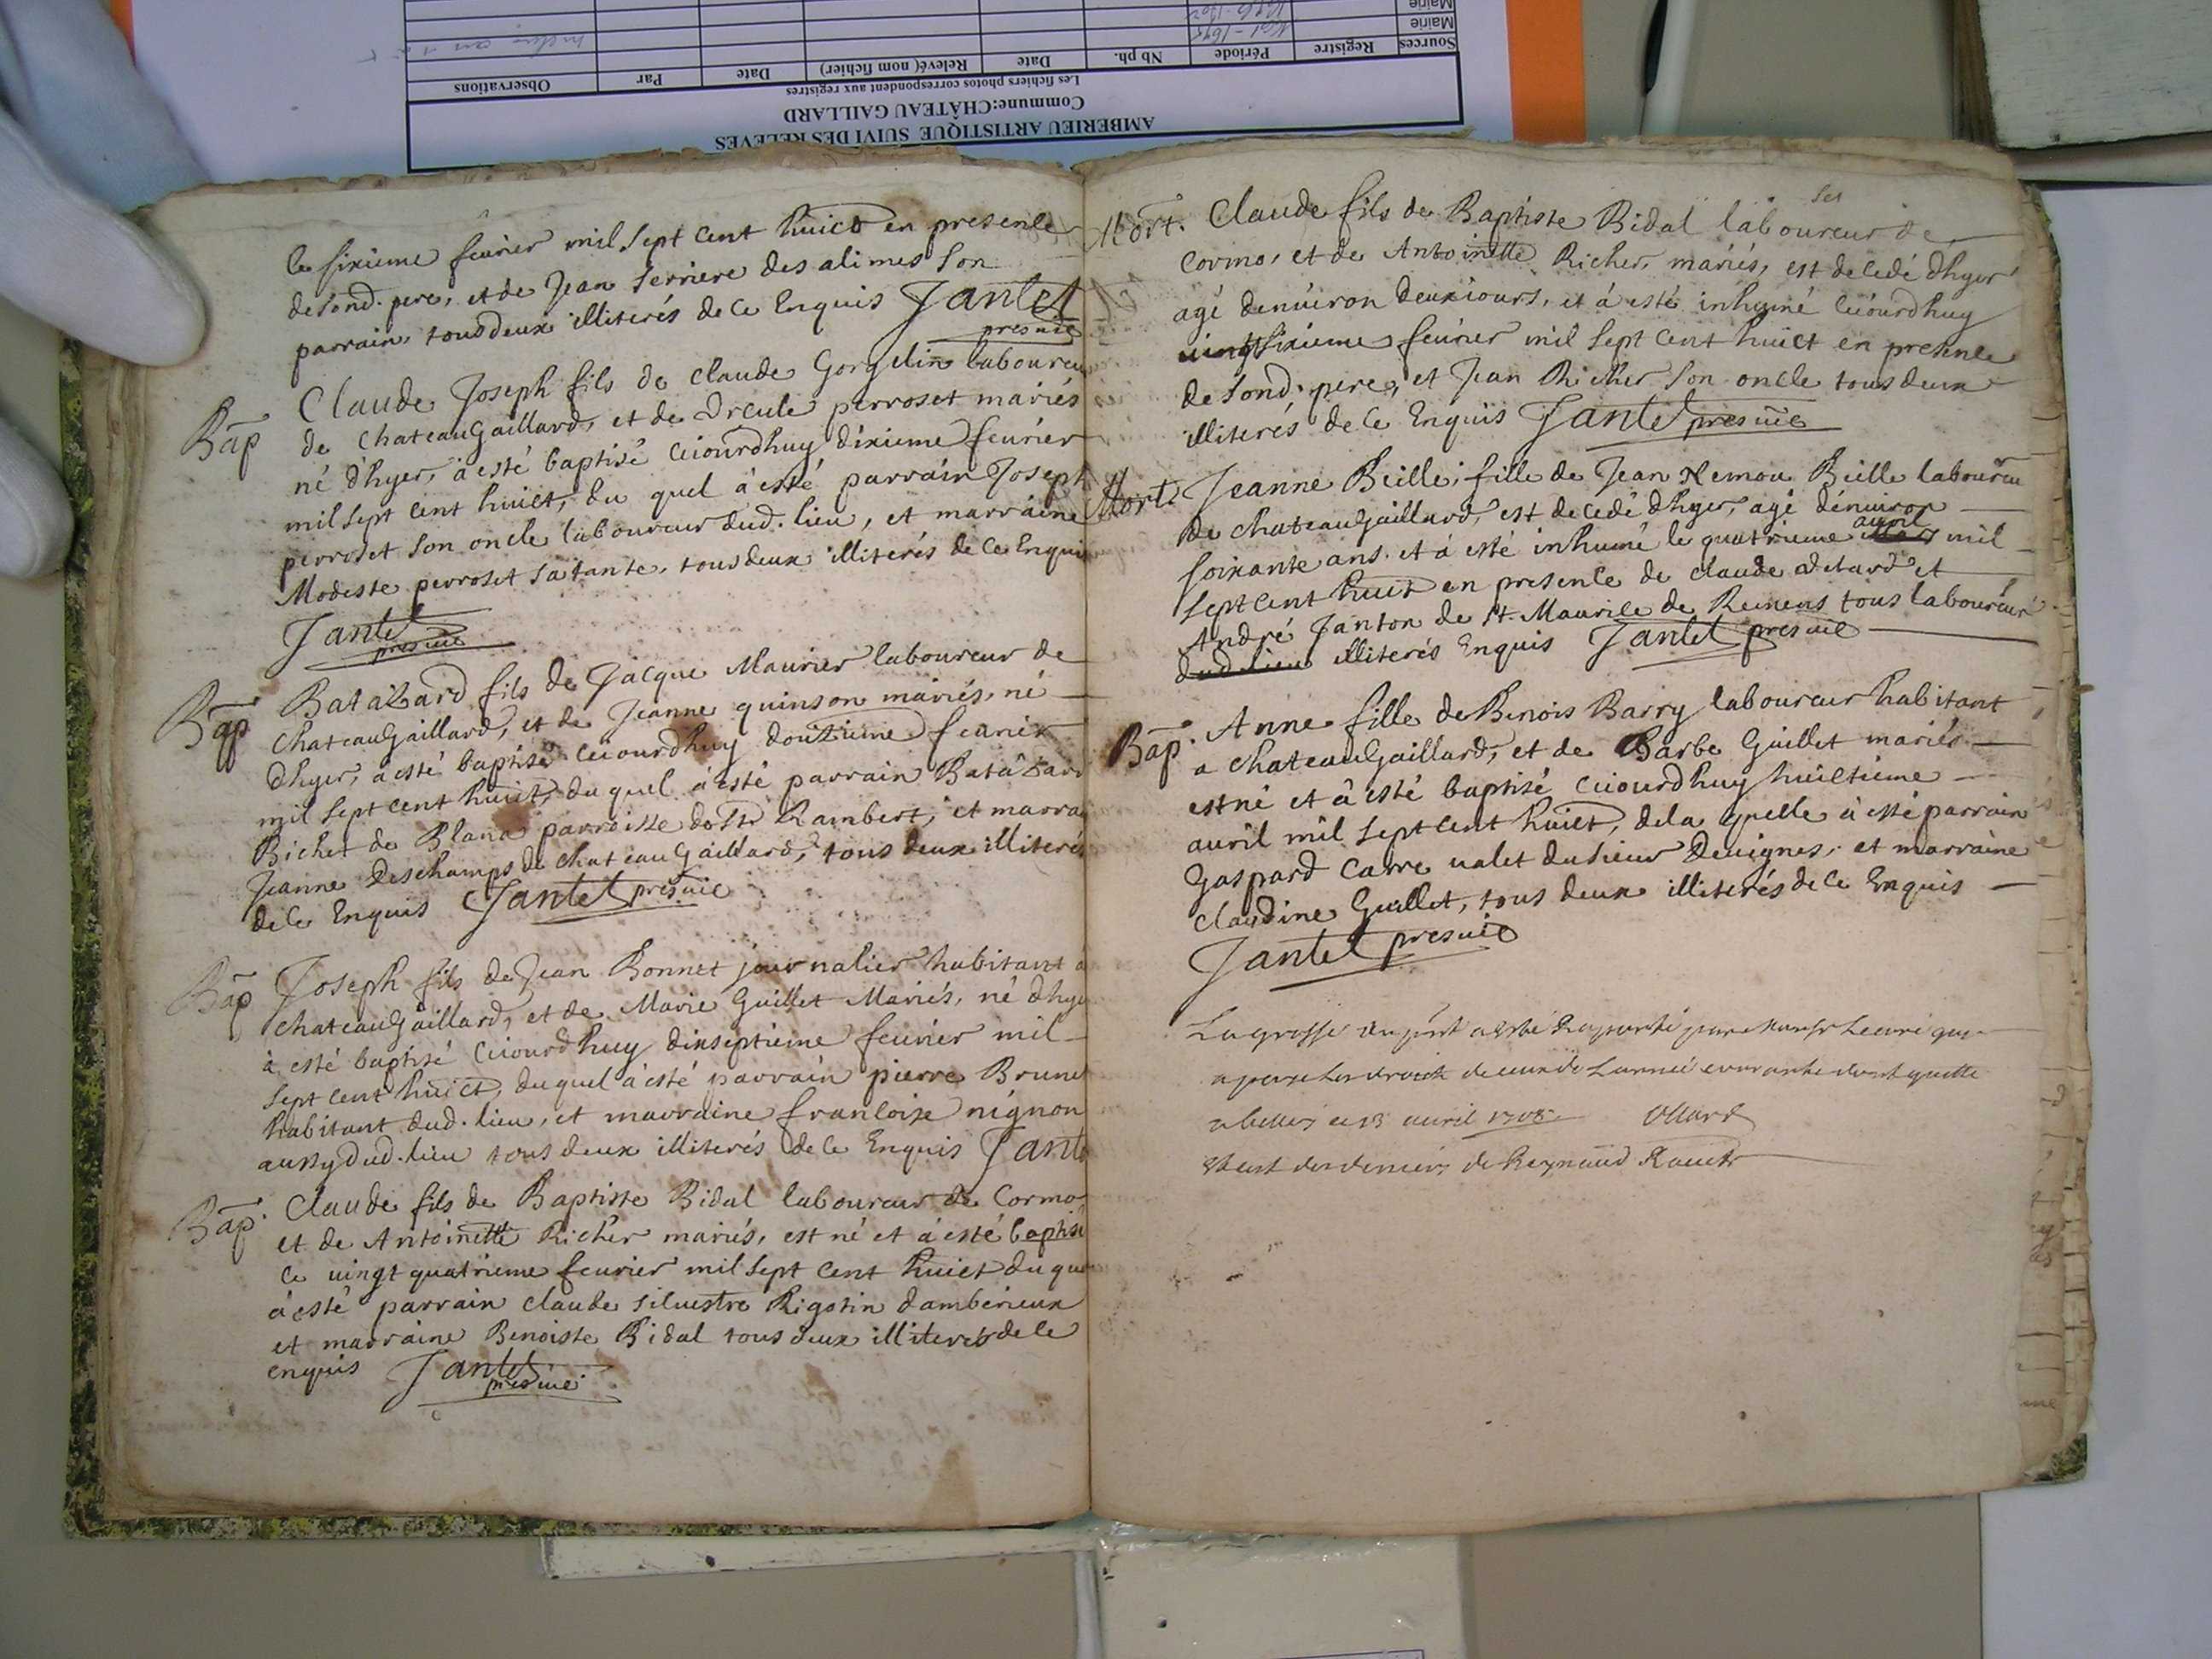 AMBERIEU ARTISTIQUE SUIVI DES RELEVES
Commune:CHÂTEAU GAILLARD
Les fichiers photos correspondent aux registres
Sources Registre Période Nb ph. Date Relevé( nom fichier) Date Par Observations
Mairie
Mairie
le sixieme feurier mil sept cent huict en presence
de sond. pere, et de Jean Serriere des alimes son
parrain, tous deux illiterés de ce Enquis Jantet
presuic
Bap Claude Joseph fils de Claude Gorgelin laboureu
de ChateauGaillard, et de Vrcule perroset mariés
né d'hyer, à esté baptisé ciiourdhuy dixieme feurier
mil sept cent huict, du quel à esté parrain Joseph
perroset son oncle laboureur dud. lieu, et marraine
Modeste perroset sa tante, tous deux illiterés de ce Enquis
Jantet
presuic
Bap Batalzard fils de Jacque Maurier laboureur de
ChateauGaillard, et de Jeanne quinson mariés, né
dhyer, à esté baptisé ceiourdhuy douzieme feurier
mil sept cent huict, du quel à esté parrain Batalzard
Richet de Blana parroisse de St Rambert, et marra
Jeanne Deschamps de ChateauGaillard, tous deux illiterés
de ce Enquis Jantet presuic
Bap Joseph fils de Jean Bonnet journalier habitant a
ChateauGaillard, et de Marie Guillet Mariés, né dhye
à esté baptisé Ciiourdhuy dixseptieme feurier mil
sept cent huict, duquel à esté parrain pierre Brunet
habitant dud. lieu, et marraine francoise nignon
aussy dud. lieu tous deux illiterés de ce Enquis Jante
Bap. Claude fils de Baptiste Bidal laboureur de Cormo
et de Antoinette Richer mariés, est né et à esté baptisé
ce uingt quatrieme feurier mil sept cent huict du que
à esté parrain claude siluestre Rigotin dambérieux
et marraine Benoiste Bidal tous deux illiterés de ce
enquis Jantet
presuic
Mort. Claude fils de Baptiste Bidal laboureur de
Cormo, et de Antoinette Richer, mariés, est decedé dhyer
agé denuiron deux iours, et à esté inhumé ceiourdhuy
uingtsixieme feurier mil sept cent huict en presence
de sond. pere, et Jean Richer son oncle tous deux
illiterés de ce Enquis Jantet presuic
Mort Jeanne Beille fille de Jean Beille laboureu
de ChateauGaillard, est decedé dhyer, agé dénuiron
soixante ans. et à esté inhumé le quatrieme auril mil
sept cent huict en presence de claude et
André Janton de St. Maurice de Remens tous laboureur
dud. lieu illiterés Enquis Jantet presuic
Bap. Anne fille de Benois Barry laboureur habitant
a ChateauGaillard, et de Barbe Guillet mariés
est né et à esté baptisé ciiourdhuy huictieme
auril mil sept cent huict, de la quelle à esté parrain
Gaspard Carre ualet du sieur Deuignes, et marraine
Claudine Guillet, tous deux illiterés de ce Enquis
Jantet presuic
La grosse du pnt a esté Raportée par Le curé qui
a paye Les droicts de ceux de Lannée courante dont quitte
a belley ce auril 1708